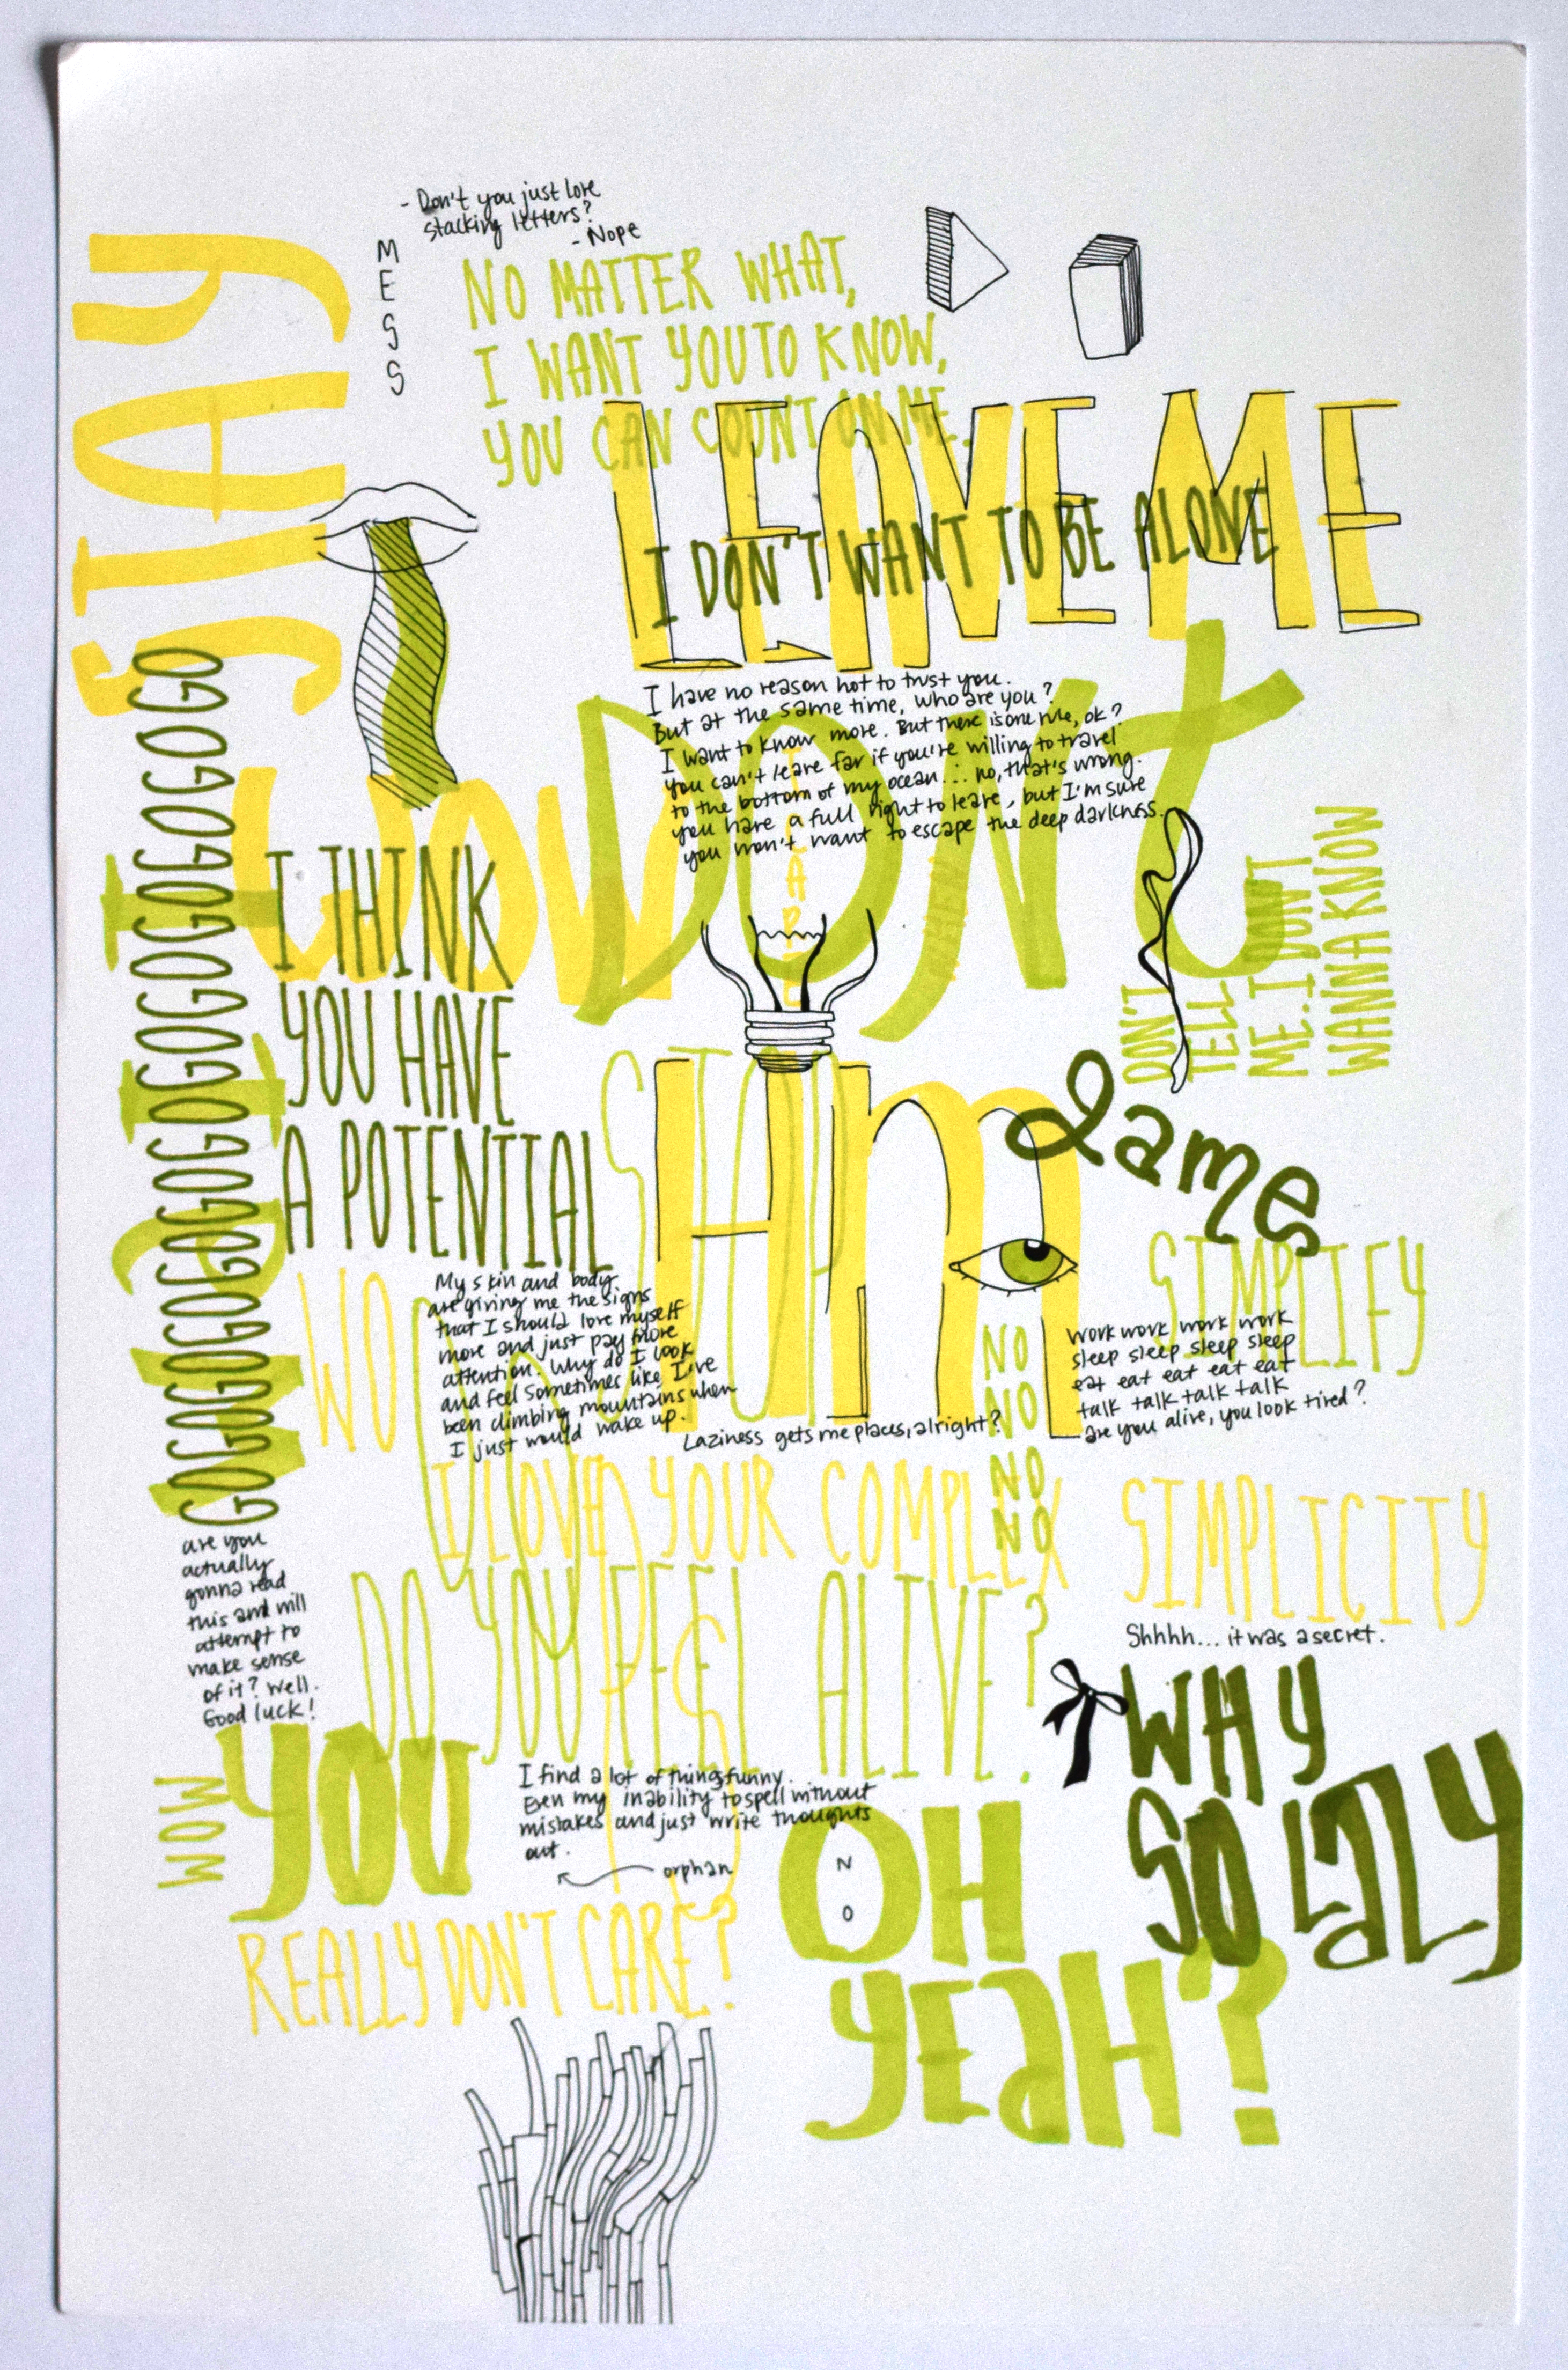 - Don't you just love
stacking letters?
- Nope
MESS
STAY
NO MATTER WHAT,
I WANT YOU TO KNOW,
YOU CAN COUNT ON ME.
LEAVE ME
I DON'T WANT TO BE ALONE
I have no reason not to trust you.
But at the same time, who are you?
I want to know more. But there is one rule, ok?
You can't leave far if you're willing to travel
to the bottom of my ocean... no, that's wrong.
you have a full right to leave, but I'm sure
you won't want to escape the deep darkness.
DON'T
GOGOGOGOGOGOGOGOGOGOGOGOGOGO
I THINK
YOU HAVE
A POTENTIAL
DON'T
TELL
ME. I DON'T
WANNA KNOW
STOP
Hm
Lame
SIMPLIFY
My skin and body
are giving me the signs
that I should love myself
more and just pay more
attention. Why do I look
and feel sometimes like I've
been climbing mountains when
I just would wake up.
Laziness gets me places, alright?
NO
NO
NO
NO
work work work work
sleep sleep sleep sleep
eat eat eat eat eat
talk talk talk talk
are you alive, you look tired?
I LOVE YOUR COMPLEX SIMPLICITY
Shhhh... it was a secret.
are you
actually
gonna read
this and will
attempt to
make sense
of it? Well.
Good luck!
DO YOU FEEL ALIVE?
WHY
SO LAZY
WOW
YOU
REALLY DON'T CARE?
I find a lot of things funny.
Even my inability to spell without
mistakes and just write thoughts
out.
orphan
OH
NO
YEAH?